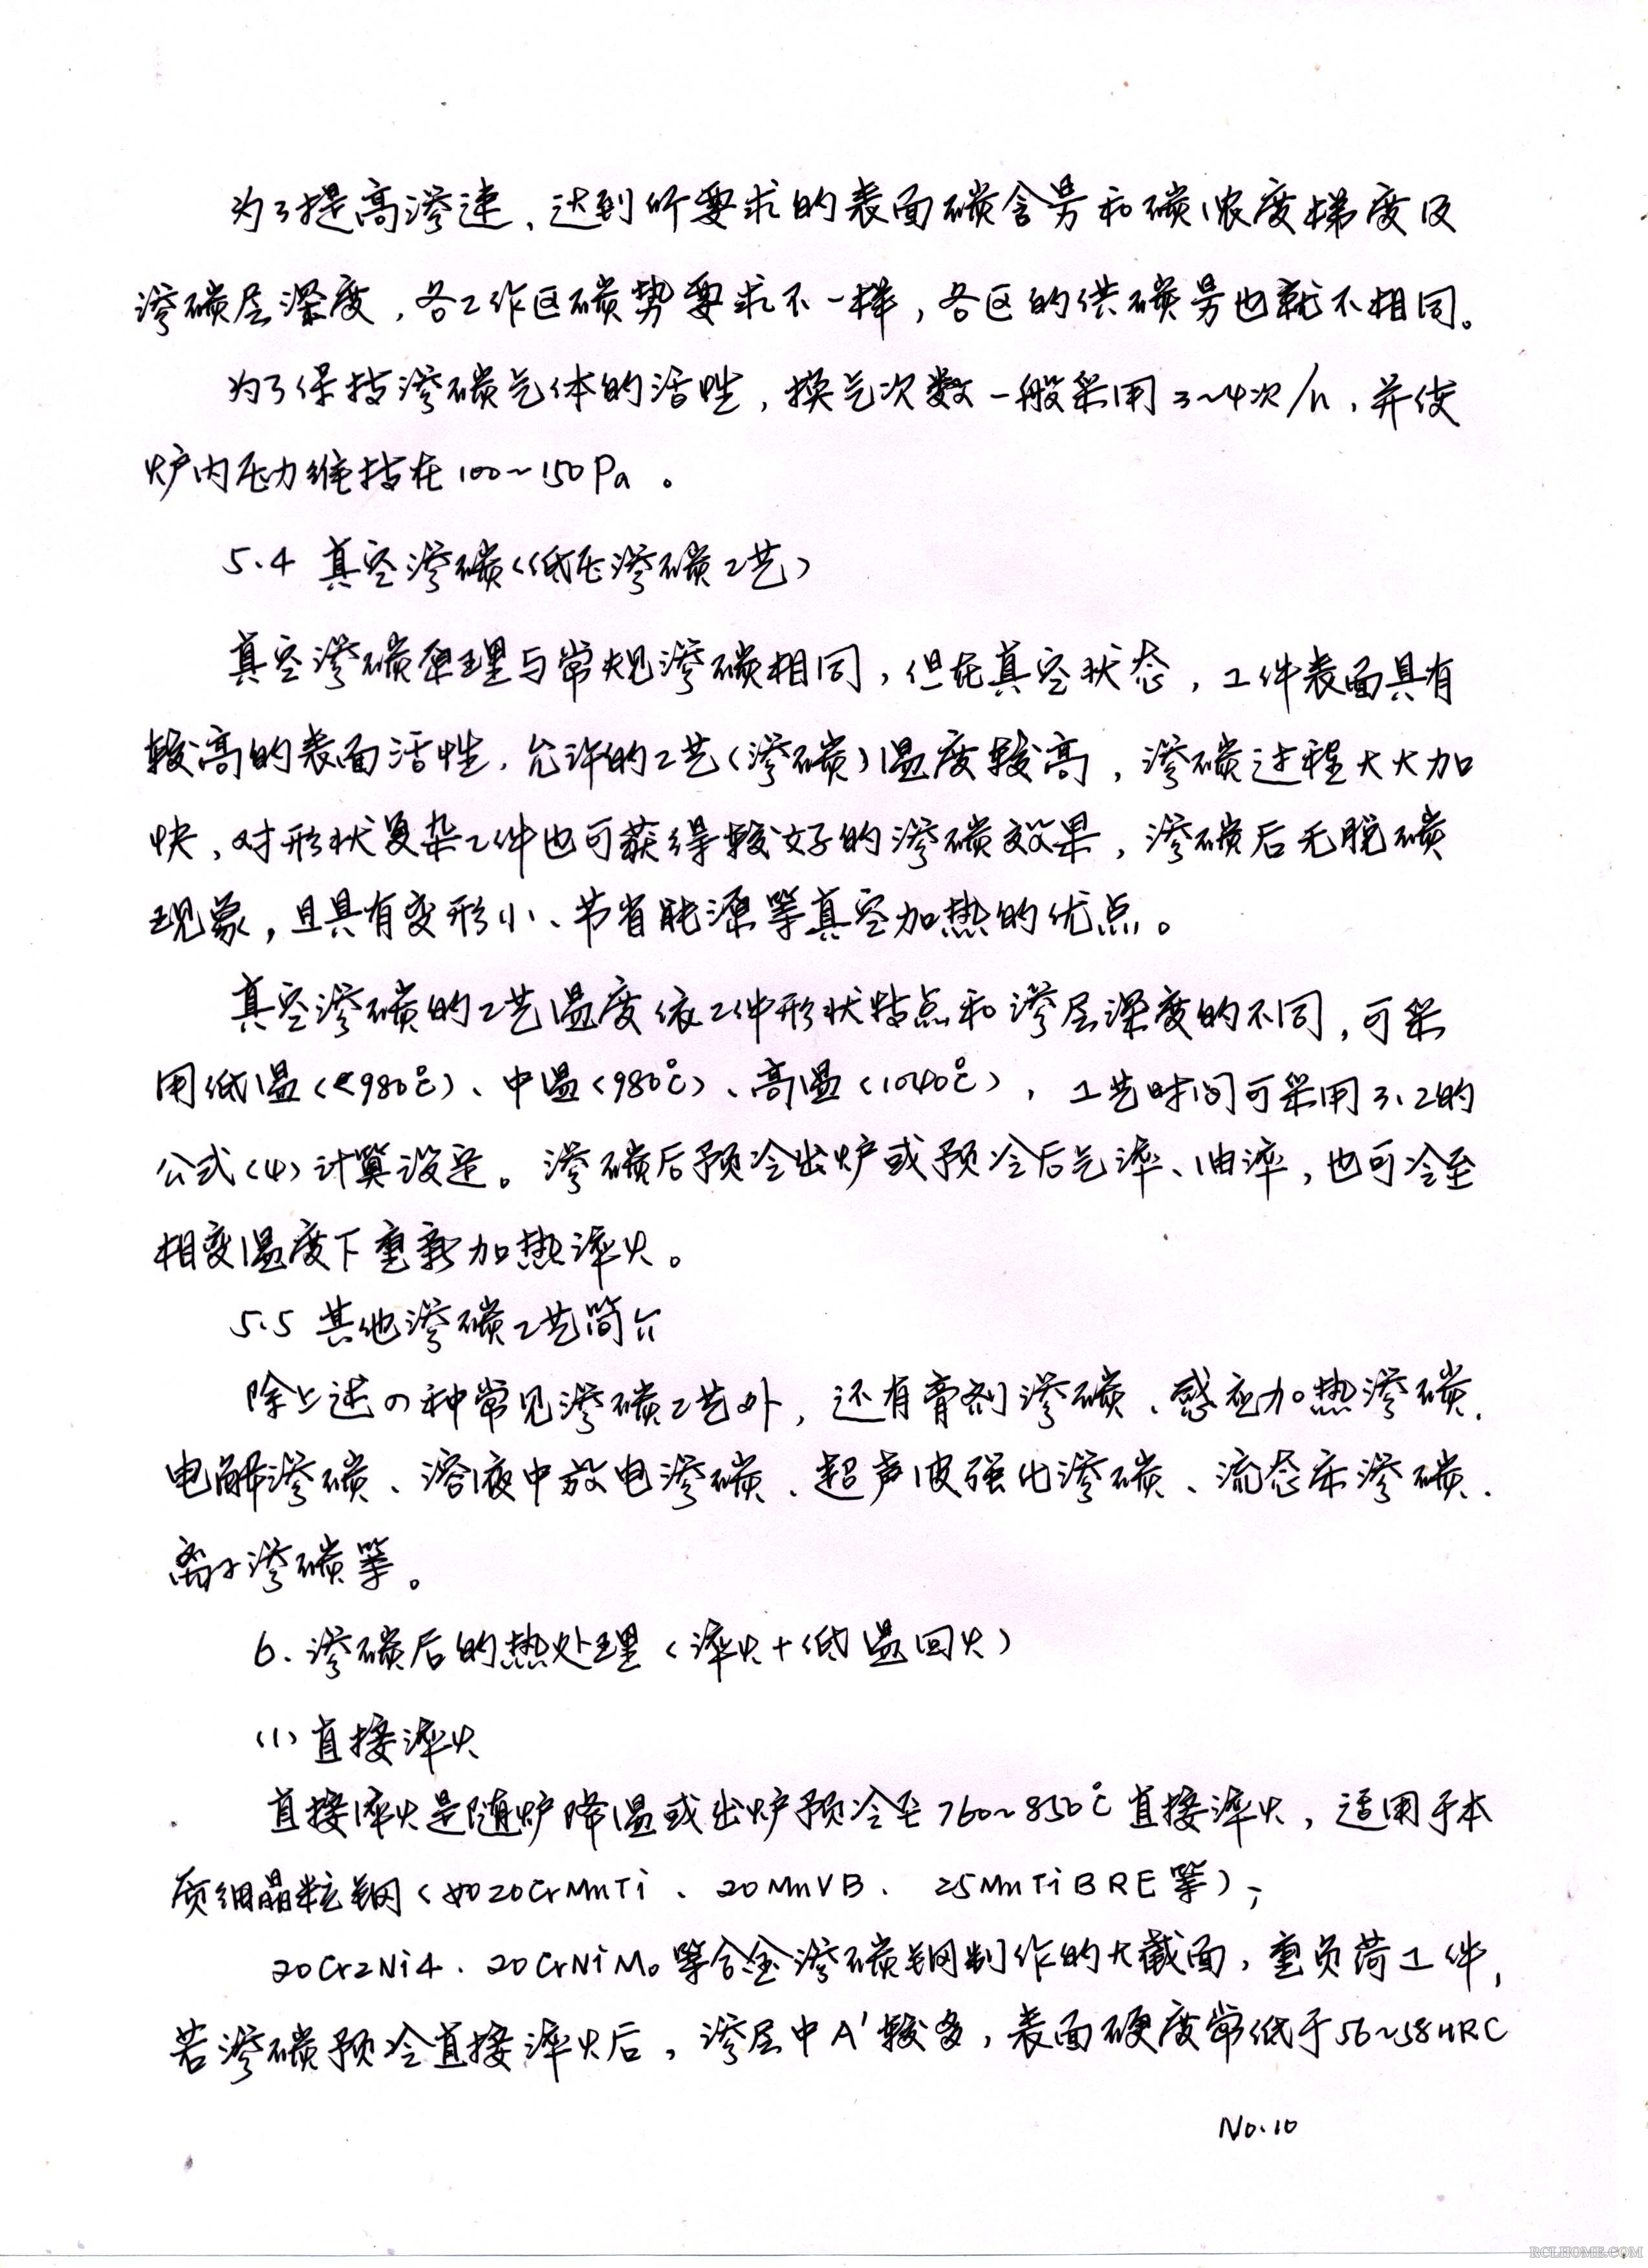 为了提高渗速、达到所要求的表面碳含量和碳浓度梯度及
渗碳层深度，各工作区碳势要求不一样，各区的供碳量也就不相同。
为了保持渗碳气体的活性，换气次数一般采用3~4次/h，并使
炉内压力维持在100~150Pa。
5.4 真空渗碳（低压渗碳工艺）
真空渗碳原理与常规渗碳相同，但在真空状态，工件表面具有
较高的表面活性，允许的工艺（渗碳）温度较高，渗碳过程大大加
快，对形状复杂工件也可获得较好的渗碳效果，渗碳后无脱碳
现象，且具有变形小、节省能源等真空加热的优点。
真空渗碳的工艺温度依工件形状特点和渗层深度的不同，可采
用低温（<980℃）、中温（980℃）、高温（1040℃），工艺时间可采用3.2的
公式（4）计算设定。渗碳后预冷出炉或预冷后气淬、油淬，也可冷至
相变温度下重新加热淬火。
5.5 其他渗碳工艺简介
除上述四种常见渗碳工艺外，还有膏剂渗碳、感应加热渗碳、
电解渗碳、溶液中放电渗碳、超声波强化渗碳、流态床渗碳、
离子渗碳等。
6. 渗碳后的热处理（淬火+低温回火）
（1）直接淬火
直接淬火是随炉降温或出炉预冷至760~850℃直接淬火，适用于本
质细晶粒钢（如20CrMnTi、20MnVB、25MnTiBRE等）；
20Cr2Ni4、20CrNiMo等合金渗碳钢制作的大截面，重负荷工件，
若渗碳预冷直接淬火后，渗层中A'较多，表面硬度常低于56~58HRC
No.10
RCLHOME.COM